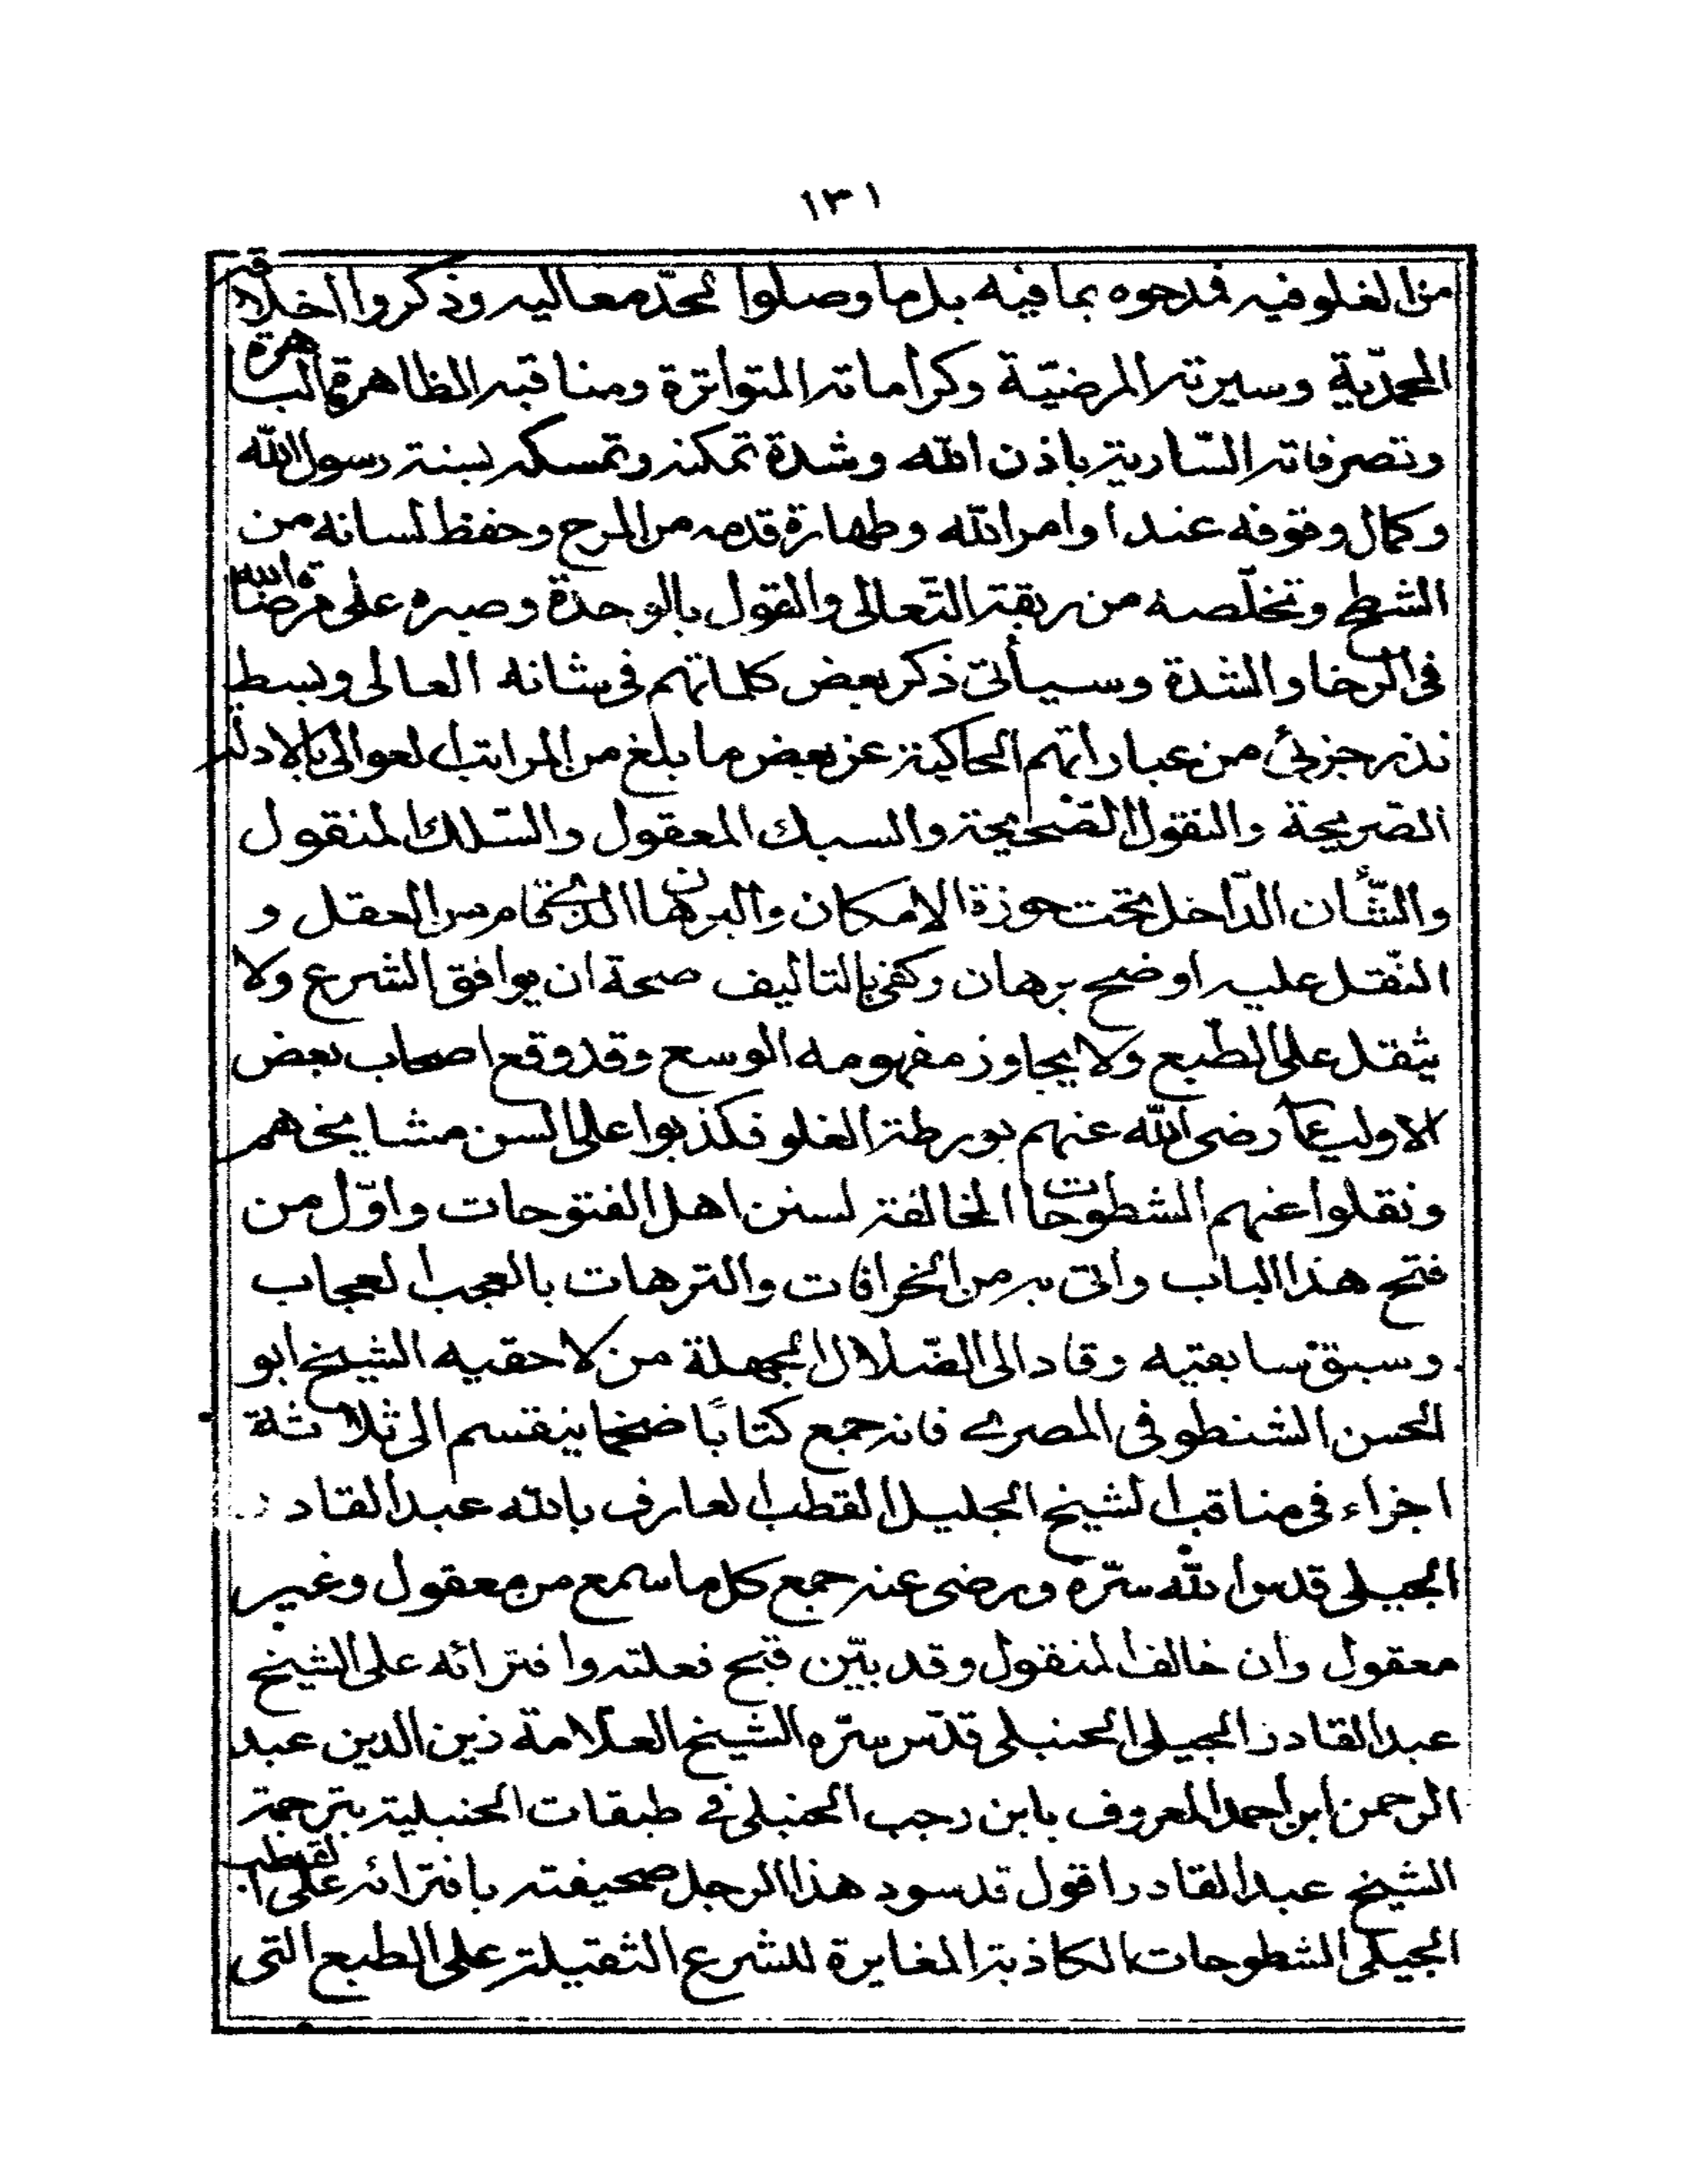 ١٣١
من الغلو فيه فمدحوه بما فيه بل ما وصلوا لحدّ معاليه وذكروا اخلاقه
المحمدّية وسيرته المرضيّة وكراماته المتواترة ومناقبه الظاهرة الباهرة
وتصرفاته السّارية باذن الله وشدة تمكنه وتمسكه بسنة رسول الله
وكمال وقوفه عند اوامر الله وطهارة قدمه من المرح وحفظ لسانه من
الشطح وتخلّصه من ربقة التّعالى والقول بالوحدة وصبره على مرضاة الله
فى الرخا والشدة وسيأتى ذكر بعض كلماتهم فى شانه العالى وبسط
نذر جزئى من عباراتهم الحاكية عن بعض ما بلغ من المراتب العوالى بالادلة
الصريحة والنقول الصحيحة والسبك المعقول والسّلك المنقول
والشّأن الدّاخل تحت حوزة الامكان والبرهان الذى قام من العقل و
النّقل عليه اوضح برهان وكفى بالتاليف صحة ان يوافق الشرع ولا
يثقل على الطّبع ولا يجاوز مفهومه الوسع وقد وقع اصحاب بعض
الاولياء رضى الله عنهم بورطة الغلو فكذبوا على السن مشايخهم
ونقلوا عنهم الشطوحات المخالفة لسنن اهل الفتوحات واوّل من
فتح هذا الباب واتى به من الخرافات والترهات بالعجب العجاب
وسبق سابقيه وقاد الى الضّلال الجهلة من لاحقيه الشيخ ابو
الحسن الشنطوفى المصرى فانه جمع كتابًا ضخما ينقسم الى ثلاثة
اجزاء فى مناقب الشيخ الجليل القطب العارف بالله عبد القادر
الجيلى قدس الله سرّه ورضى عنه جمع كل ما سمع من معقول وغير
معقول وان خالف المنقول وقد بيّن قبح فعلته وافترائه على الشيخ
عبد القادر الجيلى الحنبلى قدّس سرّه الشيخ العلّامة زين الدين عبد
الرحمن ابن احمد المعروف بابن رجب الحنبلى فى طبقات الحنبلية بترجمة
الشيخ عبد القادر اقول قد سود هذا الرجل صحيفته بافترائه على القطب
الجيلى الشطوحات الكاذبة المغايرة للشرع الثقيلة على الطبع التى